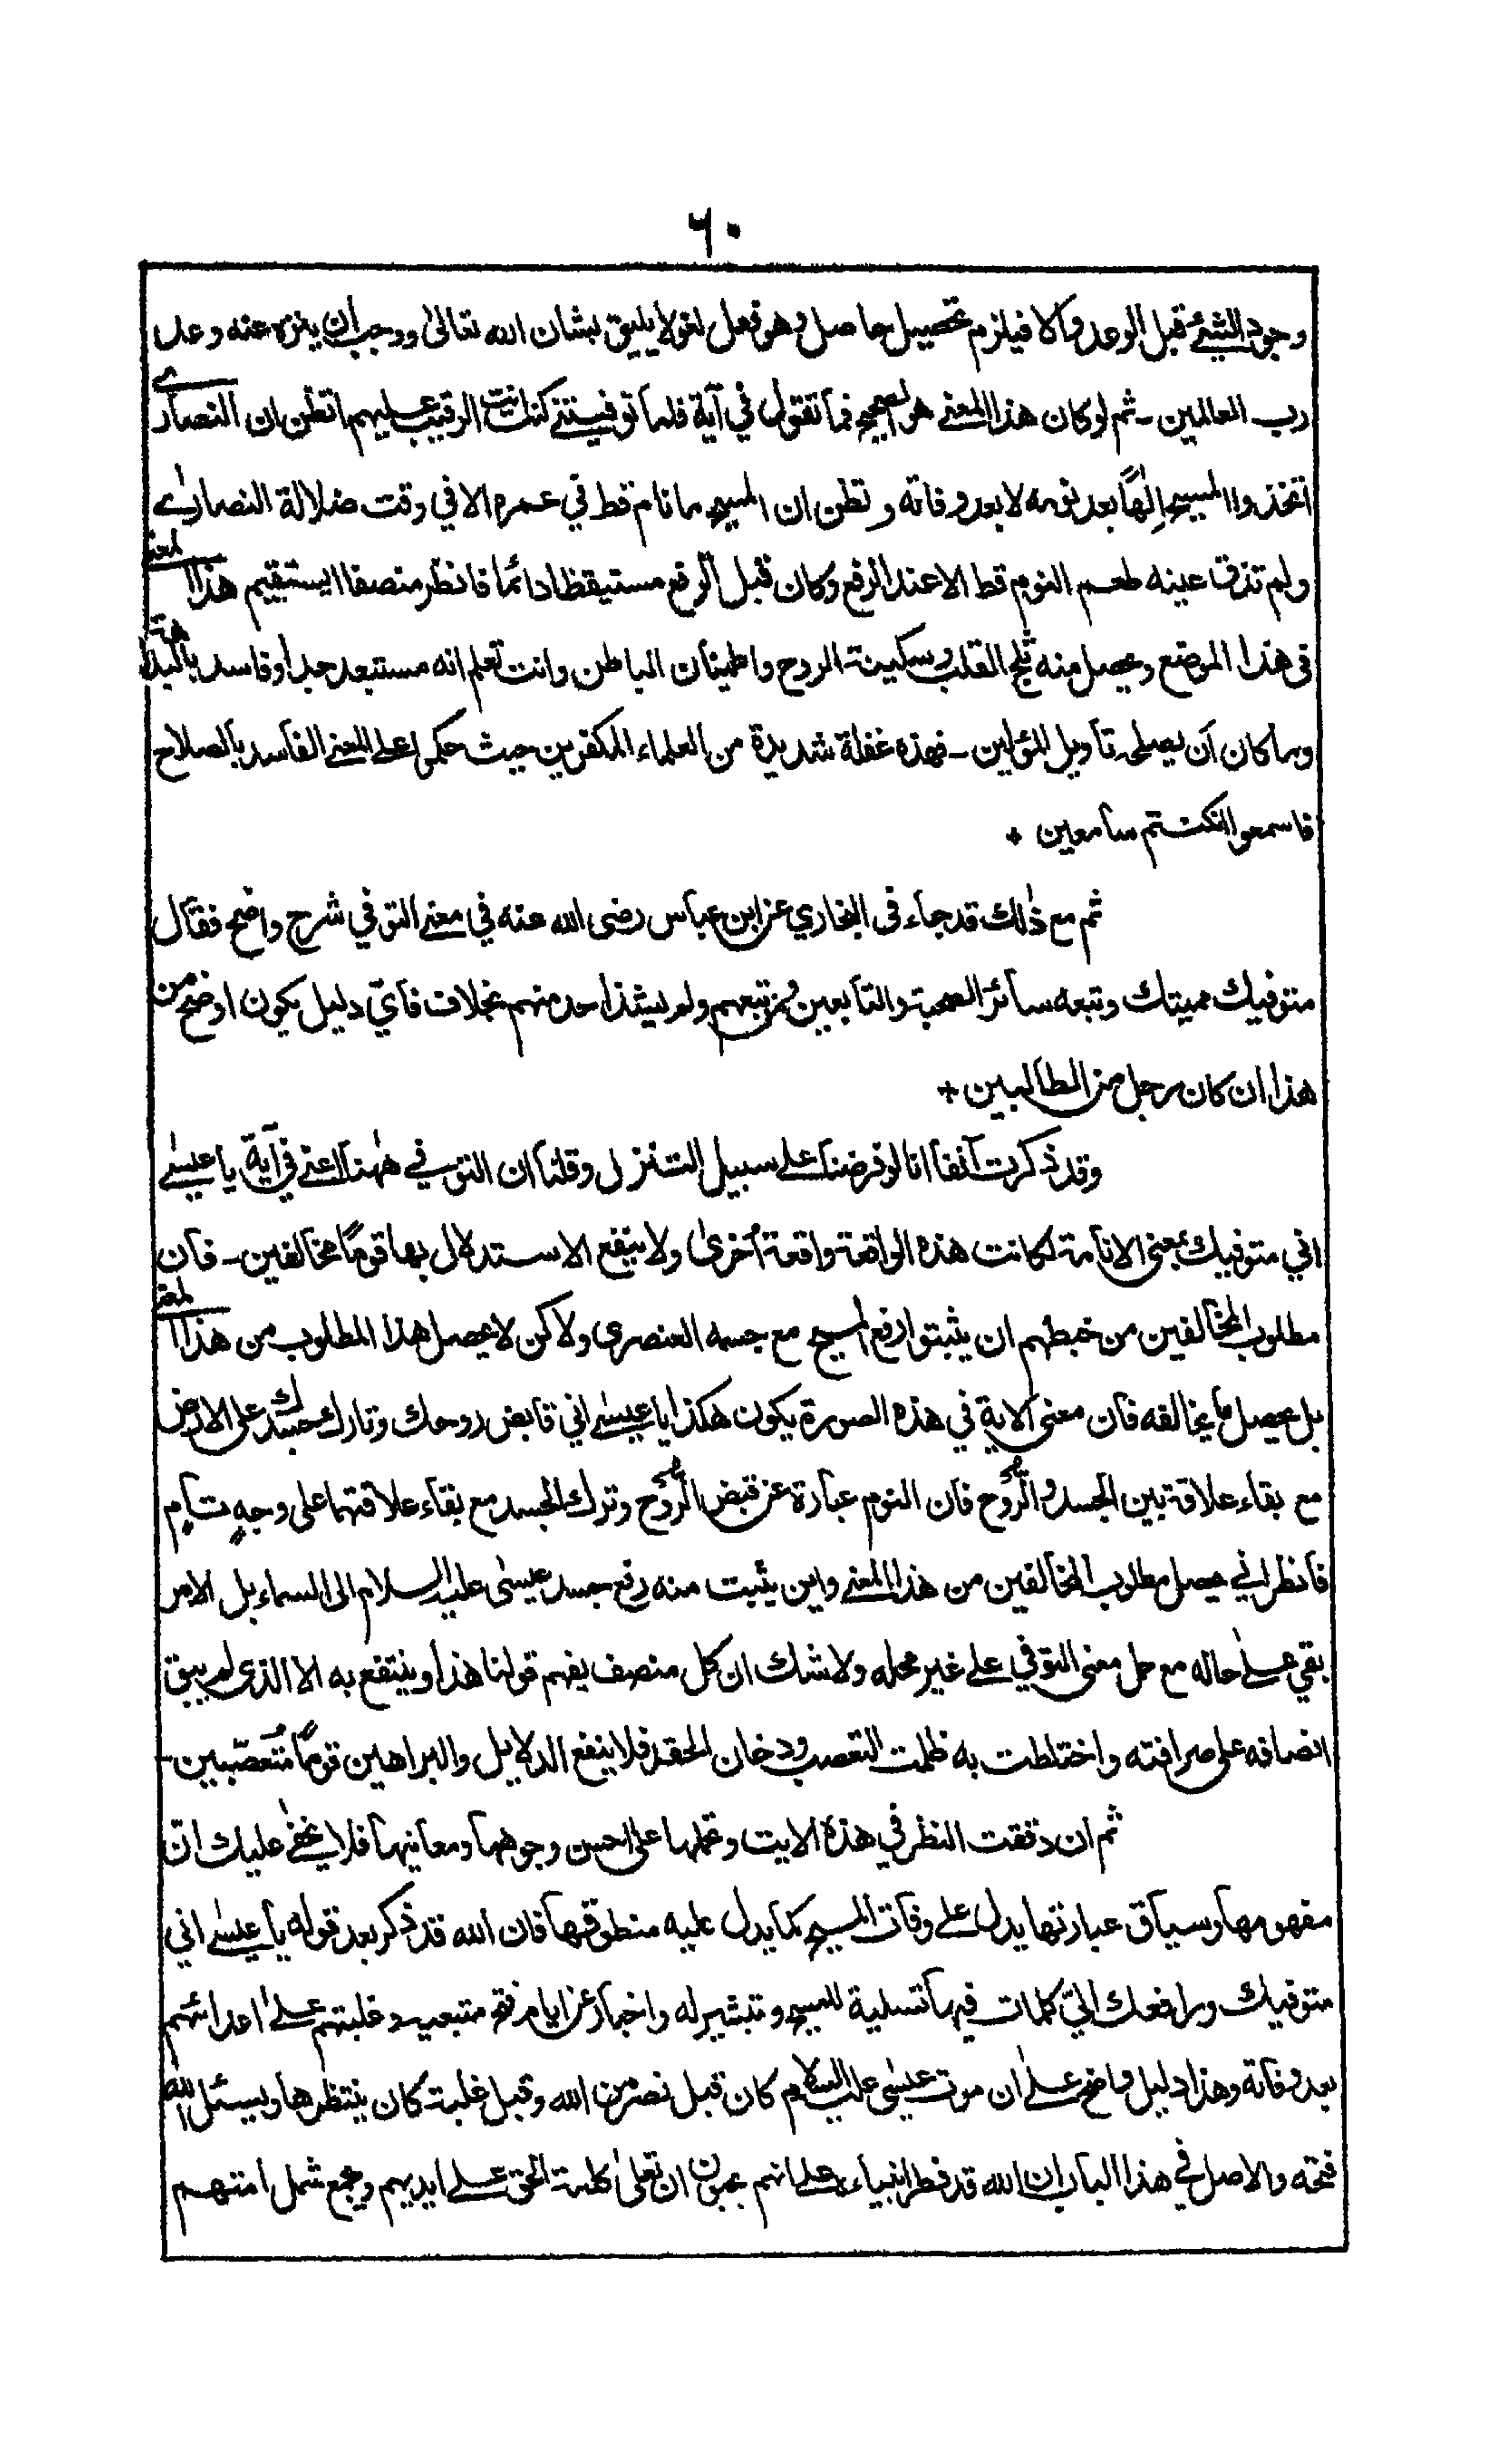 ٦٠
وجود الشيئ قبل الوعد والا فيلزم تحصيل حاصل وهو فعل لغو لا يليق بشان الله تعالىٰ ووجب ان ينزه عنه وعد
رب العالمين ـ ثم لو كان هذا المعنے هو الصحيح فما تقول في آية فلما توفيتنے كنت انت الرقيب عليهم اتظن ان النصارے
اتخذوا المسيح اِلٰهًا بعد نومه لا بعد وفاته وتظن ان المسيح ما نام قط في عمره الا في وقت ضلالة النصارٰے
ولم تذق عينه طعم النوم قط الا عند الرفع وكان قبل الرفع مستيقظا دائما فانظر منصفا ايستقيم هذا المعنے
فى هذا الموضع ويحصل منه ثلج القلب وسكينة الروح واطمينان الباطن وانت تعلم انه مستبعد جدا وفاسد بالبداهة
وما كان ان يصلحه تأويل المؤلين ـ فهذه غفلة شديدة من العلماء المكفرين حيث حكموا على المعنے الفاسد بالصلاح
فاسمعوا ان كنتم سامعين ٭
ثم مع ذٰلك قد جاء فى البخاري عن ابن عباس رضى الله عنه في معنے التوفي شرح واضح فقال
متوفيك مميتك وتبعه سائر الصحبة والتابعين ومن تبعهم ولم يشذ احد منهم بخلاف فأيّ دليل يكون اوضح من
هذا ان كان رجل من الطالبين ٭
وقد ذكرت آنفا انا لو فرضنا علے سبيل التنزل وقلنا ان التوفي ههٰنا اعنے في آية يا عيسٰے
اني متوفيك بمعنى الانامة لكانت هذه الواقعة واقعة اُخرىٰ ولا ينفع الاستدلال بها قومًا مخالفين ـ فان
مطلوب المخالفين من خبطهم ان يثبتوا رفع المسيح مع جسمه العنصرى ولاكن لا يحصل هذا المطلوب من هذا المعنے
بل يحصل ما يخالفه فان معنى الاية في هذه الصورة يكون هكذا يا عيسٰے اني قابض روحك وتارك جسدك على الارض
مع بقاء علاقة بين الجسد والرُّوح فان النوم عبارة عن قبض الرُّوح وترك الجسد مع بقاء علاقتهما على وجهٍ تامٍ
فانظر انے حصل مطلوب المخالفين من هذا المعنے واين يثبت منه رفع جسد عيسٰى عليه السلام الى السماء بل الامر
بقي علےٰ حاله مع حمل معنى التوفي علے غير محله ولا شك ان كل منصف يفهم قولنا هذا وينتفع به الا الذى لم يبق
انصافه على صرافته واختلطت به ظلمت التعصب ودخان الحقد فلا ينفع الدلايل والبراهين قومًا مُتعصّبين ـ
ثم ان دققت النظر في هذه الايت وتحملها على احسن وجوهها ومعانيها فلا يخفےٰ عليك انّ
مفهومها وسياق عبارتها يدل علے وفات المسيح كما يدل عليه منطوقها فان الله قد ذكر بعد قوله يا عيسٰے اني
متوفيك ورافعك اليّ كلمات فيها تسلية للمسيح وتبشير له واخبار عن ايام فتح متبعيه وغلبتهم علےٰ اعدائهم
بعد وفاته وهذا دليل واضح علےٰ ان موت عيسٰى عليه السلام كان قبل نصر من الله وقبل غلبة كان ينتظرها ويسئل الله
فتحه والاصل في هذا الباب ان الله قد فطر انبياءه علے انهم يحبون ان تعلىٰ كلمة الحق علے ايديهم ويجمع شمل امتهم